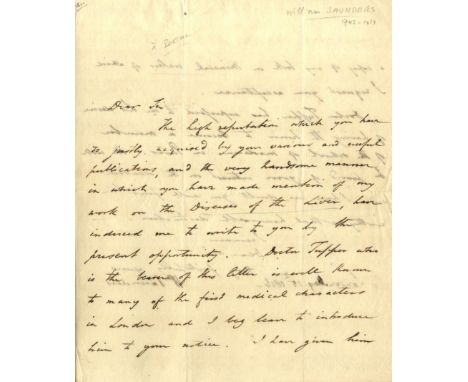 William SAUNDERS
1743-1817
Dear Sir
The high reputation which you have
so justly acquired by your various and useful
publications, and the very handsome manner
in which you have made mention of my
work on the Diseases of the Liver, have
induced me to write to you by the
present opportunity. Doctor Tupper who
is the bearer of this letter is well known
to many of the first medical characters
in London and I beg leave to introduce
him to your notice. I have given him